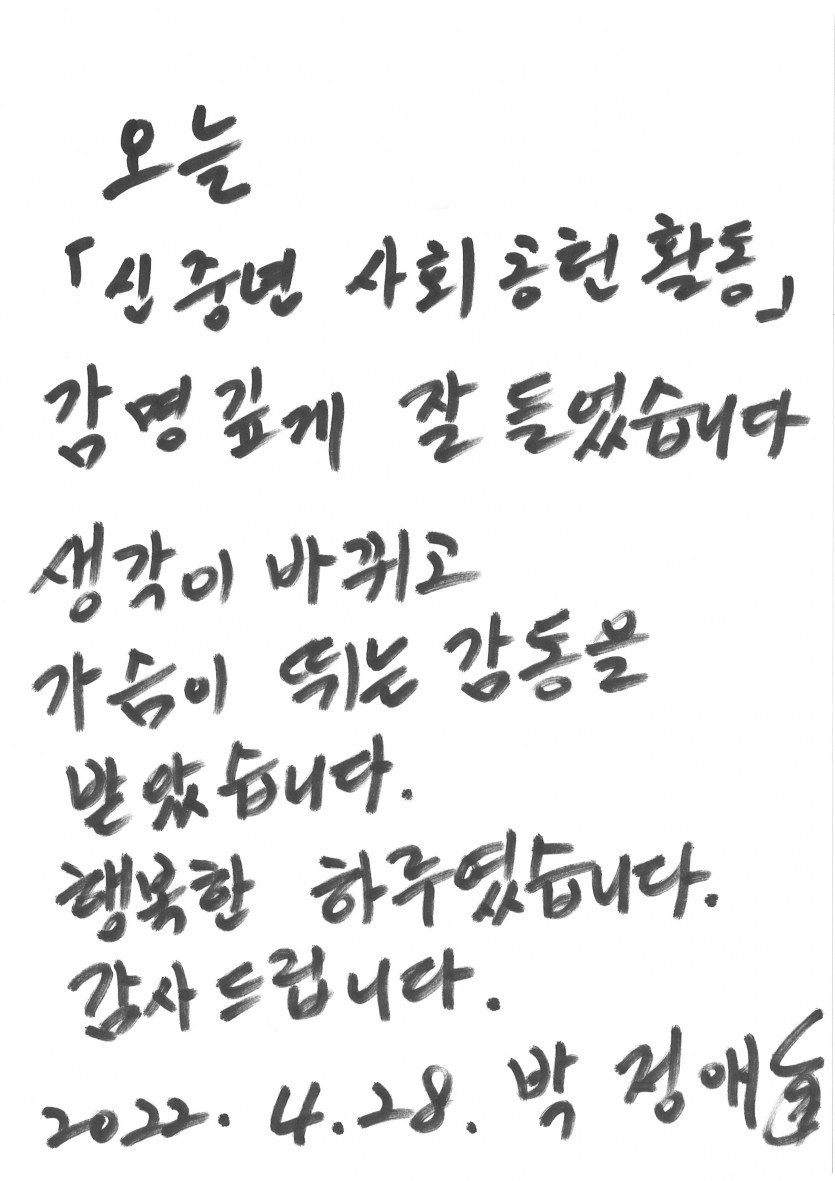 오늘
「신중년 사회공헌활동」
감명깊게 잘 들었습니다
생각이 바뀌고
가슴이 뛰는 감동을
받았습니다.
행복한 하루였습니다.
감사드립니다.
2022. 4. 28. 박정애